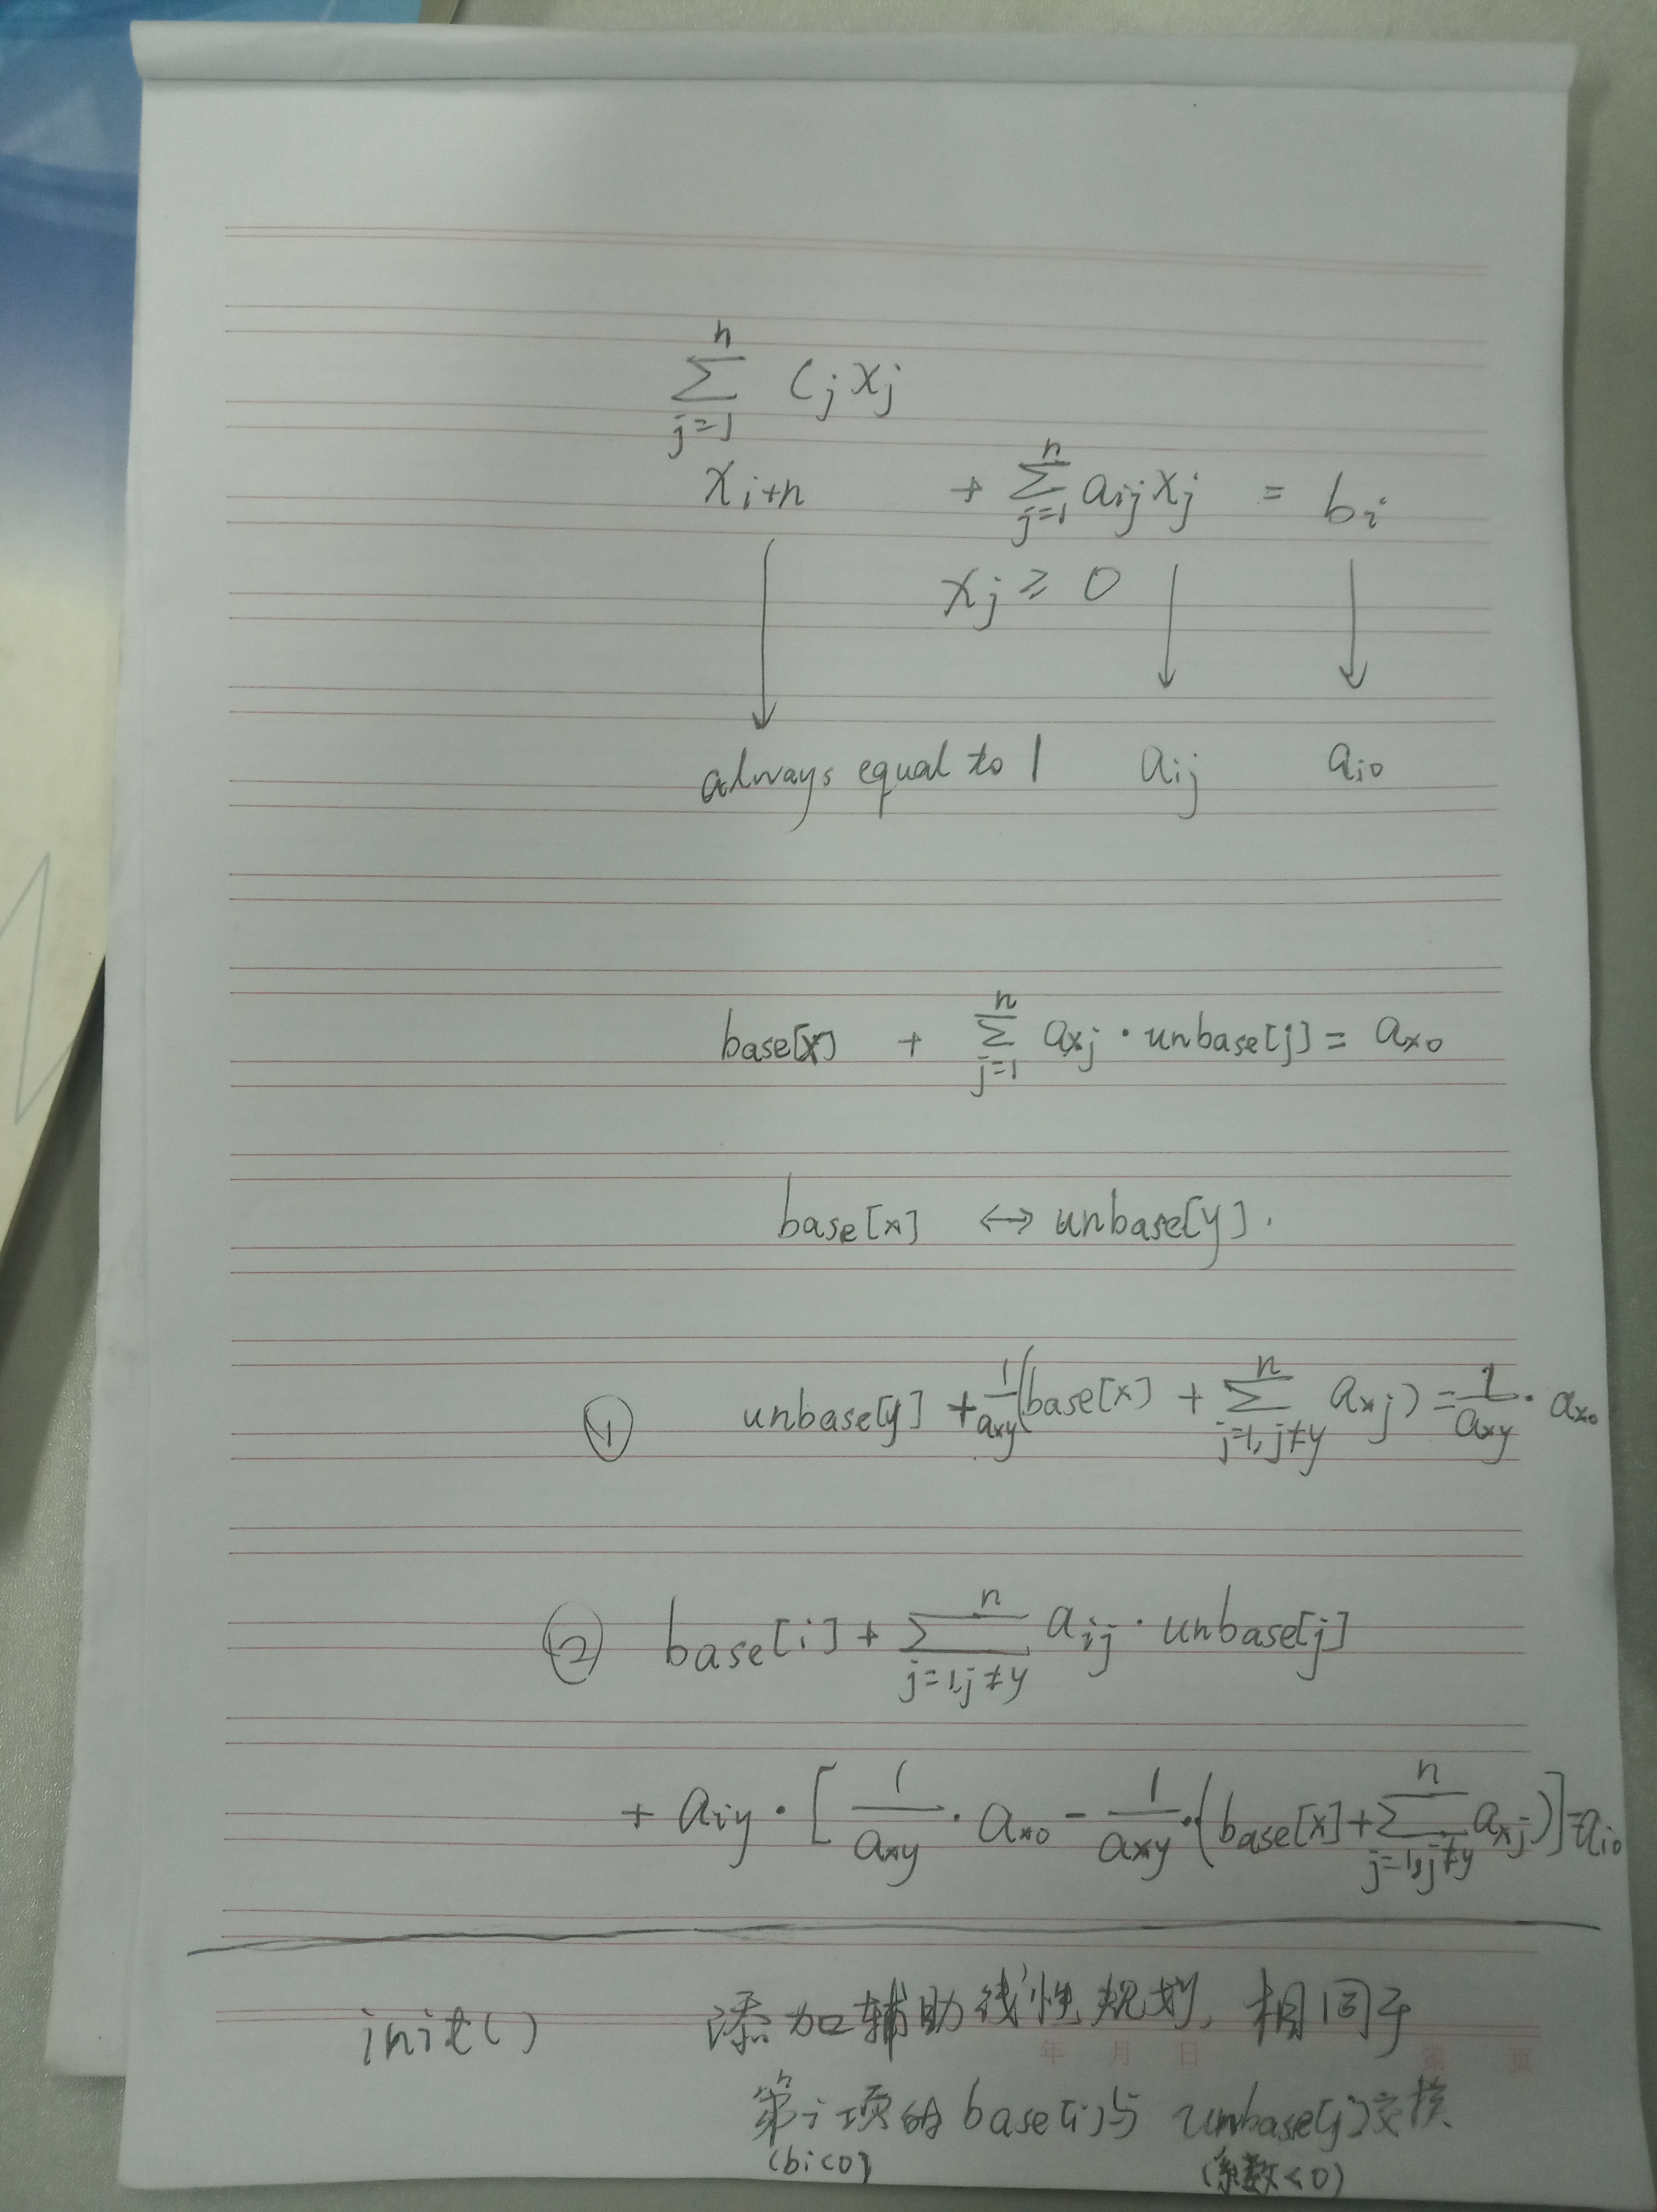 n
∑ Cj xj
j=1
x i+n + ∑ j=1 n aij xj = bi
xj ≥ 0
always equal to 1 aij ai0
base[x] + ∑ j=1 n axj · unbase[j] = ax0
base[x] ↔ unbase[y].
① unbase[y] + 1/axy (base[x] + ∑ j=1, j≠y n axj) = 1/axy · ax0
② base[i] + ∑ j=1, j≠y n aij · unbase[j]
+ aiy · [1/axy · ax0 - 1/axy · (base[x] + ∑ j=1, j≠y n axj)] = ai0
init() 添加辅助线性规划, 相同于
年 月 日 第 页
第i项的base[i]与unbase[j]交换
(bi<0) (系数<0)